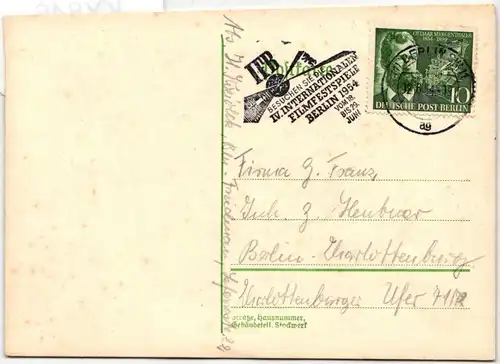 IFB
Postkarte
BESUCHEN SIE DIE
IV. INTERNATIONALEN
FILMFESTSPIELE
BERLIN 1954
VOM 18.
BIS 29.
JUNI
OTTMAR MERGENTHALER
1854 1899
BERLIN
10
DEUTSCHE POST BERLIN
ag
Firma G. Franz,
Inh. G. Heubner
Berlin-Charlottenburg
Charlottenburger Ufer
Straße, Hausnummer,
Gebäudeteil, Stockwerk
Abs.
Bln. Friedenau